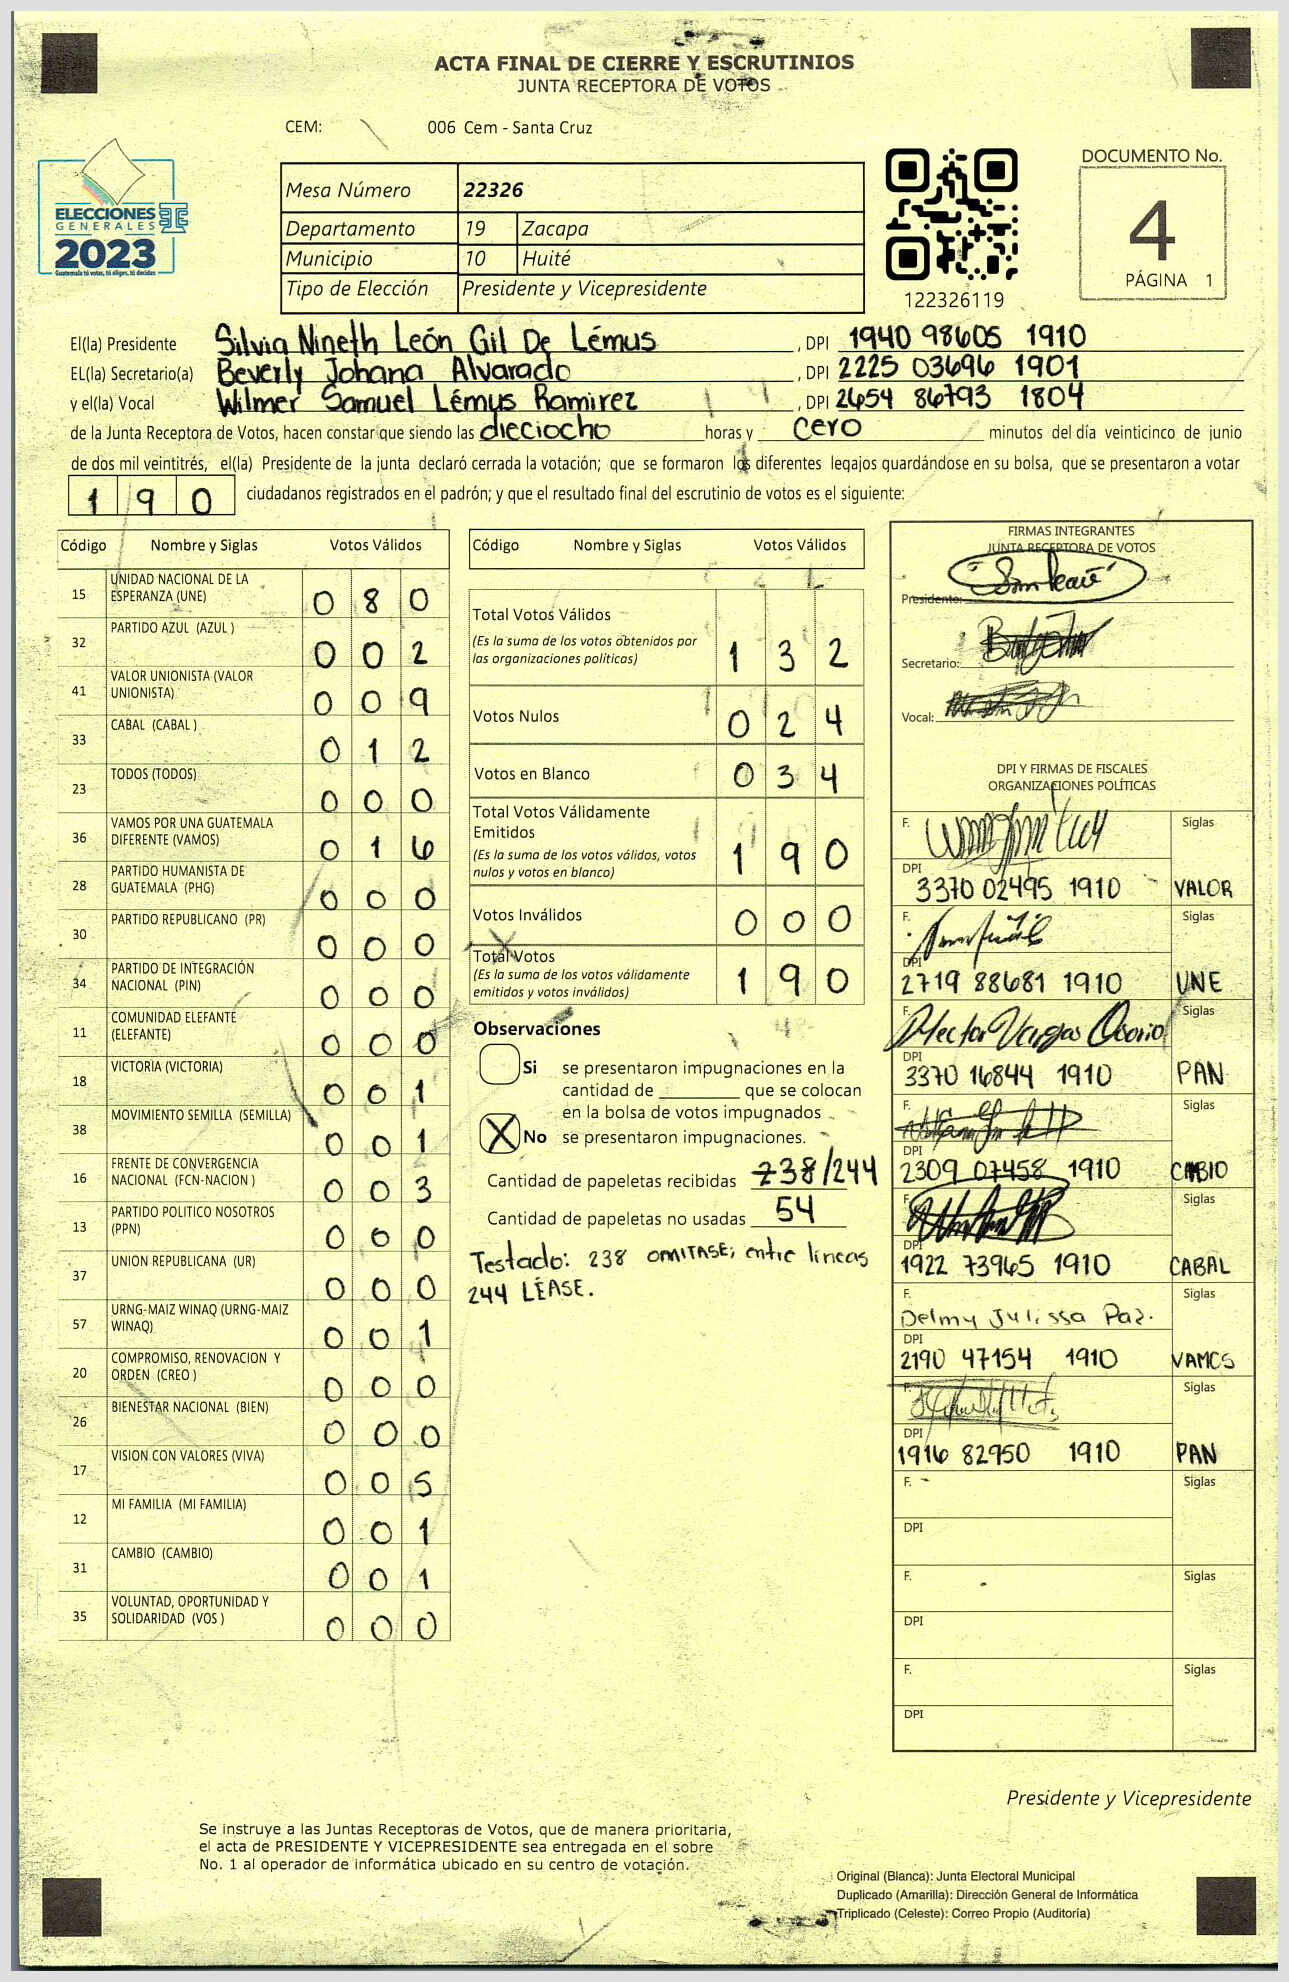 ACTA FINAL DE CIERRE Y ESCRUTINIOS
JUNTA RECEPTORA DE VOTOS
CEM: 006 Cem - Santa Cruz
ELECCIONES
GENERALES
2023
Guatemala tú votas, tú eliges, tú decides
Mesa Número 22326
Departamento 19 Zacapa
Municipio 10 Huité
Tipo de Elección Presidente y Vicepresidente
122326119
DOCUMENTO No.
4
PÁGINA 1
El(la) Presidente Silvia Nineth León Gil De Lémus , DPI 1940 98605 1910
EL(la) Secretario(a) Beverly Johana Alvarado , DPI 2225 03696 1901
y el(la) Vocal Wilmer Samuel Lémus Ramirez , DPI 2654 86793 1804
de la Junta Receptora de Votos, hacen constar que siendo las dieciocho horas y cero minutos del día veinticinco de junio
de dos mil veintitrés, el(la) Presidente de la junta declaró cerrada la votación; que se formaron los diferentes legajos guardándose en su bolsa, que se presentaron a votar
190 ciudadanos registrados en el padrón; y que el resultado final del escrutinio de votos es el siguiente:
Código Nombre y Siglas Votos Válidos
15 UNIDAD NACIONAL DE LA ESPERANZA (UNE) 0 8 0
32 PARTIDO AZUL (AZUL ) 0 0 2
41 VALOR UNIONISTA (VALOR UNIONISTA) 0 0 9
33 CABAL (CABAL ) 0 1 2
23 TODOS (TODOS) 0 0 0
36 VAMOS POR UNA GUATEMALA DIFERENTE (VAMOS) 0 1 6
28 PARTIDO HUMANISTA DE GUATEMALA (PHG) 0 0 0
30 PARTIDO REPUBLICANO (PR) 0 0 0
34 PARTIDO DE INTEGRACIÓN NACIONAL (PIN) 0 0 0
11 COMUNIDAD ELEFANTE (ELEFANTE) 0 0 0
18 VICTORIA (VICTORIA) 0 0 1
38 MOVIMIENTO SEMILLA (SEMILLA) 0 0 1
16 FRENTE DE CONVERGENCIA NACIONAL (FCN-NACION ) 0 0 3
13 PARTIDO POLITICO NOSOTROS (PPN) 0 0 0
37 UNION REPUBLICANA (UR) 0 0 0
57 URNG-MAIZ WINAQ (URNG-MAIZ WINAQ) 0 0 1
20 COMPROMISO, RENOVACION Y ORDEN (CREO ) 0 0 0
26 BIENESTAR NACIONAL (BIEN) 0 0 0
17 VISION CON VALORES (VIVA) 0 0 5
12 MI FAMILIA (MI FAMILIA) 0 0 1
31 CAMBIO (CAMBIO) 0 0 1
35 VOLUNTAD, OPORTUNIDAD Y SOLIDARIDAD (VOS ) 0 0 0
Código Nombre y Siglas Votos Válidos
Total Votos Válidos 1 3 2
(Es la suma de los votos obtenidos por
las organizaciones políticas)
Votos Nulos 0 2 4
Votos en Blanco 0 3 4
Total Votos Válidamente
Emitidos 1 9 0
(Es la suma de los votos válidos, votos
nulos y votos en blanco)
Votos Inválidos 0 0 0
Total Votos 1 9 0
(Es la suma de los votos válidamente
emitidos y votos inválidos)
Observaciones
Si se presentaron impugnaciones en la
cantidad de ________ que se colocan
en la bolsa de votos impugnados
X No se presentaron impugnaciones.
Cantidad de papeletas recibidas 238/244
Cantidad de papeletas no usadas 54
Testado: 238 OMITASE; entre lineas
244 LÉASE.
FIRMAS INTEGRANTES
JUNTA RECEPTORA DE VOTOS
Presidente:
Secretario:
Vocal:
DPI Y FIRMAS DE FISCALES
ORGANIZACIONES POLÍTICAS
F. Siglas
DPI 3370 02495 1910 VALOR
F. Siglas
DPI 2719 88681 1910 UNE
F. Hector Vargas Osorio Siglas
DPI 3370 16844 1910 PAN
F. Siglas
DPI 2309 07458 1910 CMBIO
F. Siglas
DPI 1922 73965 1910 CABAL
F. Delmy Julissa Paz. Siglas
DPI 2190 47154 1910 VAMOS
F. Siglas
DPI 1916 82950 1910 PAN
F. Siglas
DPI
F. Siglas
DPI
F. Siglas
DPI
Presidente y Vicepresidente
Se instruye a las Juntas Receptoras de Votos, que de manera prioritaria,
el acta de PRESIDENTE Y VICEPRESIDENTE sea entregada en el sobre
No. 1 al operador de informática ubicado en su centro de votación.
Original (Blanca): Junta Electoral Municipal
Duplicado (Amarilla): Dirección General de Informática
Triplicado (Celeste): Correo Propio (Auditoría)